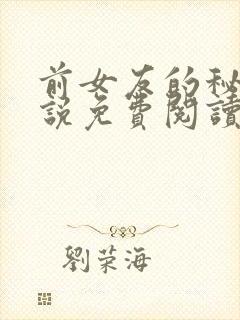 前女友的秘
說免費閱讀
劉荣海